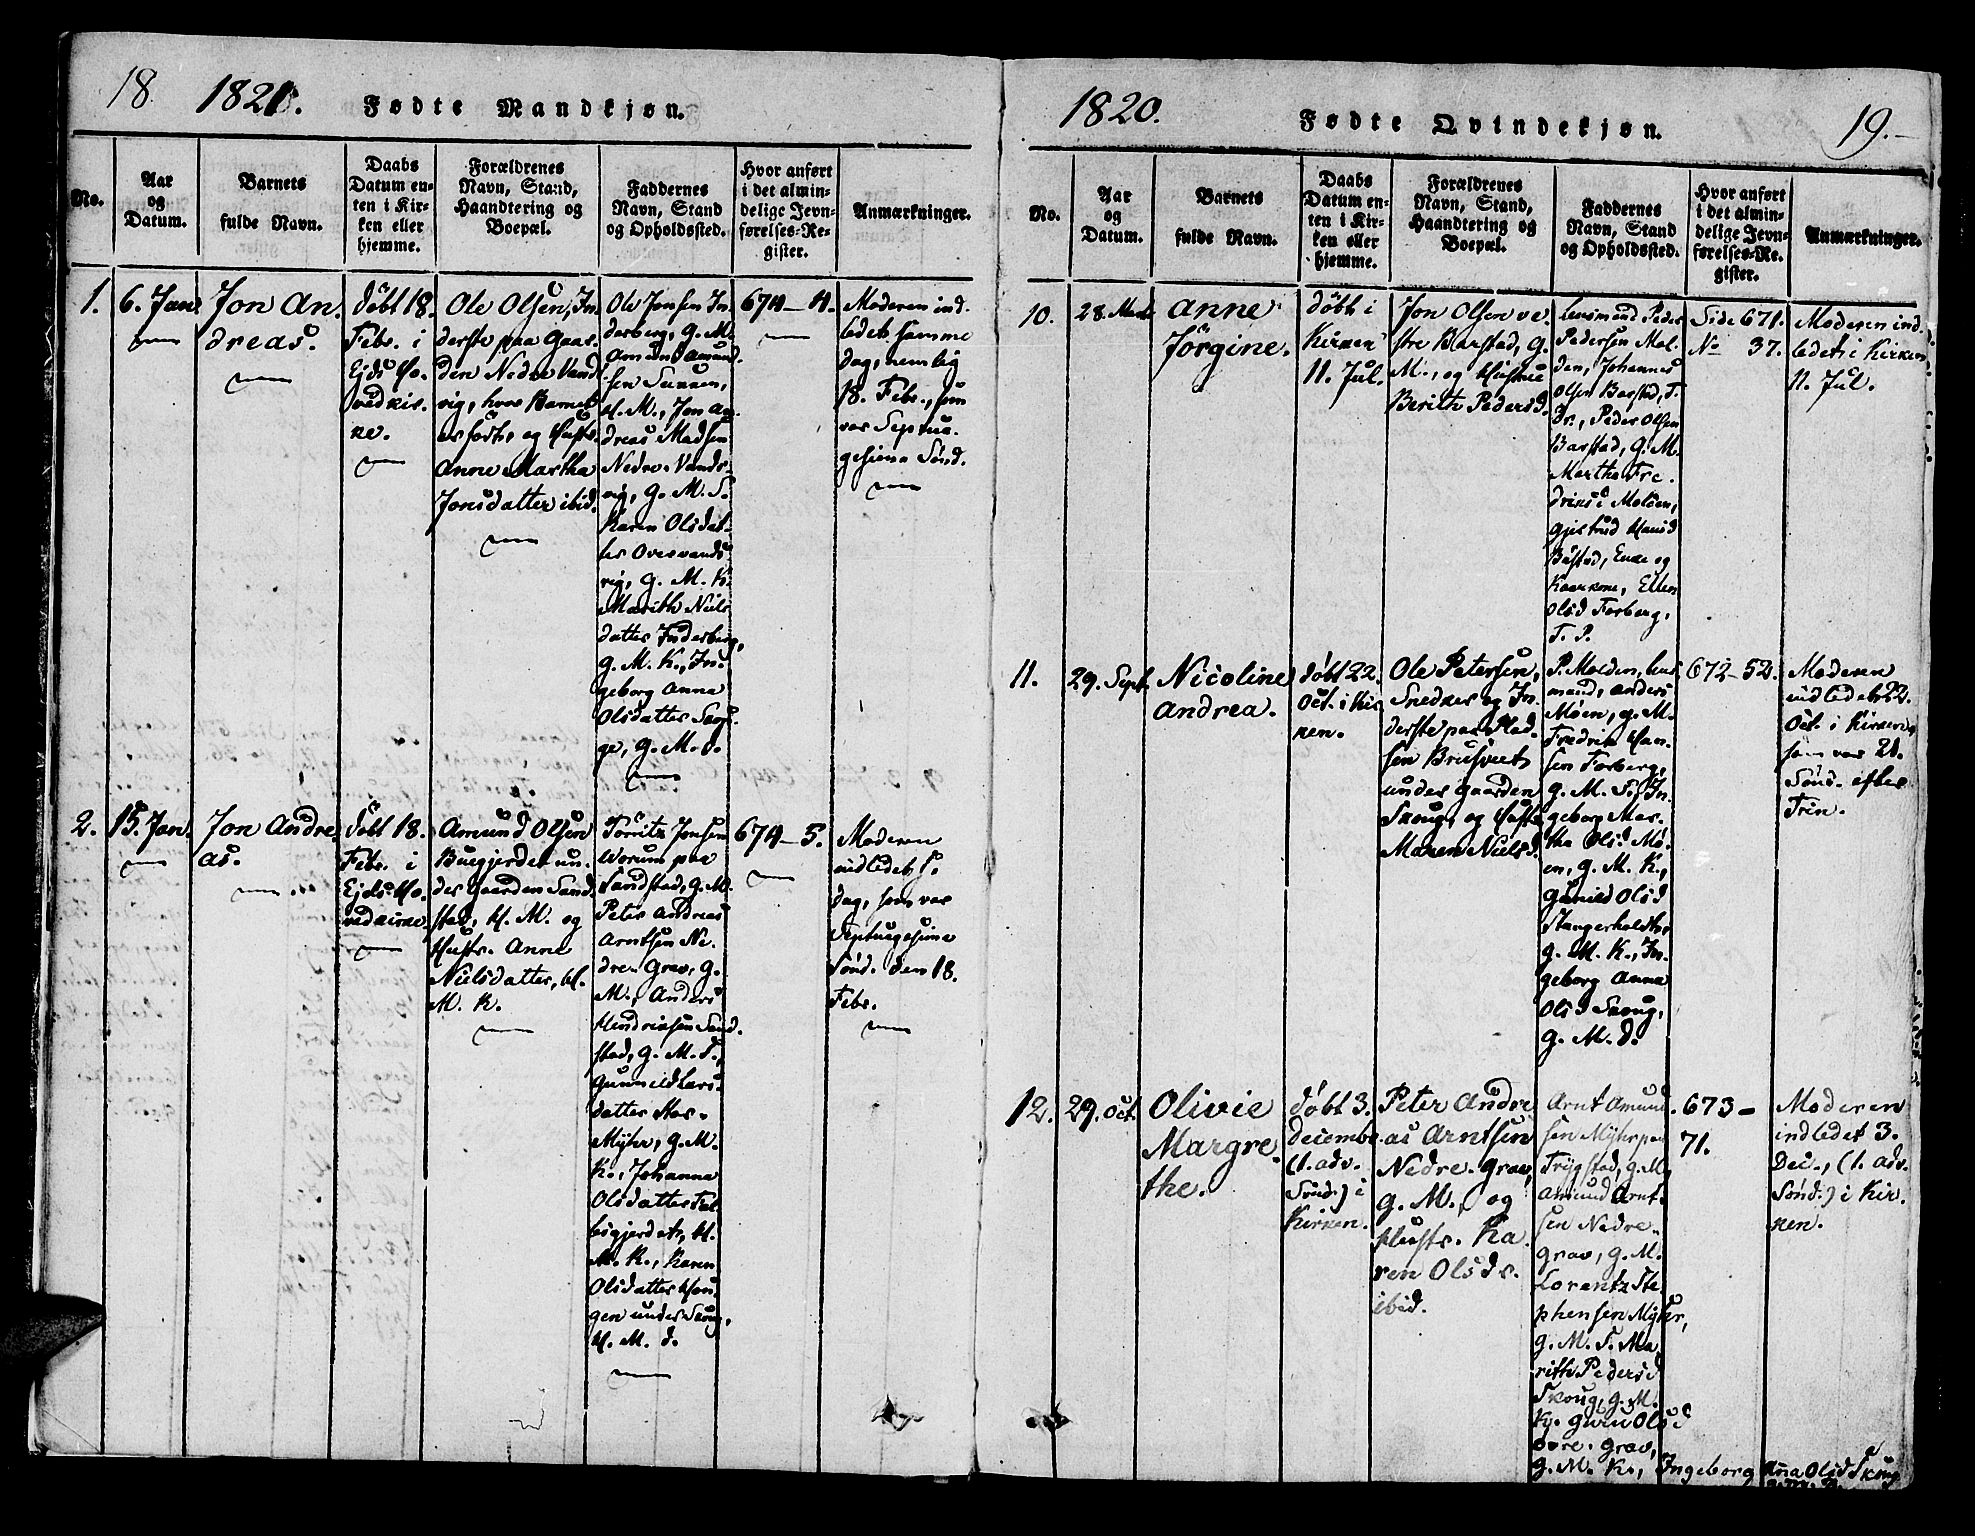 18.
1821.
Fødte Mandkjøn.
No.
Aar
og
Datum.
Barnets
fulde Navn.
Daabs
Datum en-
ten i Kir-
ken eller
hjemme.
Forældrenes
Navn, Stand,
Haandtering og
Boepæl.
Faddernes
Navn, Stand
og Opholdssted.
Hvor anført
i det almin-
delige Jevn-
førelses-Re-
gister.
Anmærkninger.
1.
6. Jan.
Jon An
dreas.
døbt 18.
Febr. i
Ejds Ho-
vedkir-
ke.
Ole Olsen, In
derste paa Gaar
den Nedre Vand
vig, hvor Barnet
er født, og Hustr.
Anne Martha
Jonsdatter ibid.
Ole Jonsen In
derberg, G. M.
Amund Amund
sen Sunnen,
H. M., Jon An
dreas Madsen
Nedre Vands-
vig, G. M. S.
Karen Olsdat-
ter Overvands
vig, G. M. K.
Marith Niels
datter Inderberg,
G. M. K., In-
geborg Anna
Olsdatter Saug-
ge, G. M. D.
674 - 4.
Moderen ind.
ledet samme
dag, nemlig
18. Febr., som
var Septua-
gesiema Sønd.
2.
15. Jan.
Jon Andre
as.
døbt 18.
Febr. i
Ejds Ho-
vedkirke.
Amund Olsen
Buegjerdet un-
der Gaarden Sand
stad, H. M. og
Hustr. Anne
Nielsdatter, H.
M. K.
Jonsen
Worum paa
Sandstad, G. M.
Peter Andreas
Arntsen Ne-
dre Grav, G.
M., Anders
Hendriksen Sand
stad, G. M. S.,
Gunnild Lars
datter
Myhr, G. M.
K., Johanna
Olsdatter
gjerdet, H.
M. K., Karen
Olsdatter Hau-
gen under Skoug,
H. M. D.
674 - 5.
Moderen
indledet s.
dag, som var
Septuagesima
Sønd. den 18.
Febr.
1820.
Fødte Qvindekjøn.
19.-
No.
Aar
og
Datum.
Barnets
fulde Navn.
Daabs
Datum en-
ten i Kir-
ken eller
hjemme.
Forældrenes
Navn, Stand,
Haandtering og
Boepæl.
Faddernes
Navn, Stand
og Opholdssted.
Hvor anført
i det almin-
delige Jevn-
førelses-Re-
gister.
Anmærkninger.
10.
28. Mart.
Anne
Jørgine.
døbt i
Kirken
11. Jul.
Jon Olsen ve-
stre Barstad, G.
M., og Hustrue
Berith Pedersd.
Lensmand Peder
Pedersen Mol-
den, Johannes
Olsen Barstad, T.
Dr., Peder Olsen
Barstad, G. M.
Martha Fre-
driksd Molden,
Gjertrud Hansd
Barstad, Enke og
Kaarkone, Ellen
Olsd Forberg,
T. P.
Side 671.
No 37.
Moderen ind.
ledet i Kirken
11. Jul.
11.
29. Sept.
Nicoline
Andrea.
døbt 22.
Oct. i Kir
ken.
Ole Petersen,
Snedker og In-
derste paa Plad-
sen Brusveet
under Gaarden
Skoug, og Hustr
Maren Nielsd.
P. Molden, Lens
mand, Anders
Möen, G. M.
Fredrik Han-
sen Forberg,
G. M. S., In-
geborg Mar-
tha Olsd Mö-
en, G. M. K.,
Gunild Olsd
Stangerholdt,
G. M. K., In-
geborg Anna
Olsd Skoug,
G. M. D.
672 - 52.
Moderen
indledet 22.
Oct. i Kirken,
som var 21.
Sönd. efter
Trin.
12.
29. Oct.
Olivie
Margre-
the.
døbt 3.
Decembr.
(1. Adv.
Sønd.) i
Kirken.
Peter Andre
as Arntsen
Nedre. Grav,
G. M., og
Hustr. Ka
ren Olsdr.
ibid.
Arnt Amund
sen Myhr paa
Trygstad, G. M.
Amund Arnt-
sen Nedre-
Grav, G. M.
Lorentz Ste
phensen Myhr,
G. M. S. Ma
rith Pedersd
Skoug, G. M.
K., Guru Olsd
övre. Grav,
G. M. K., Ingeborg Ana Olsd Skoug
673 -
71.
Moderen
indledet 3.
Dec., (1. Adv.
Sönd.) i Kir
ken.